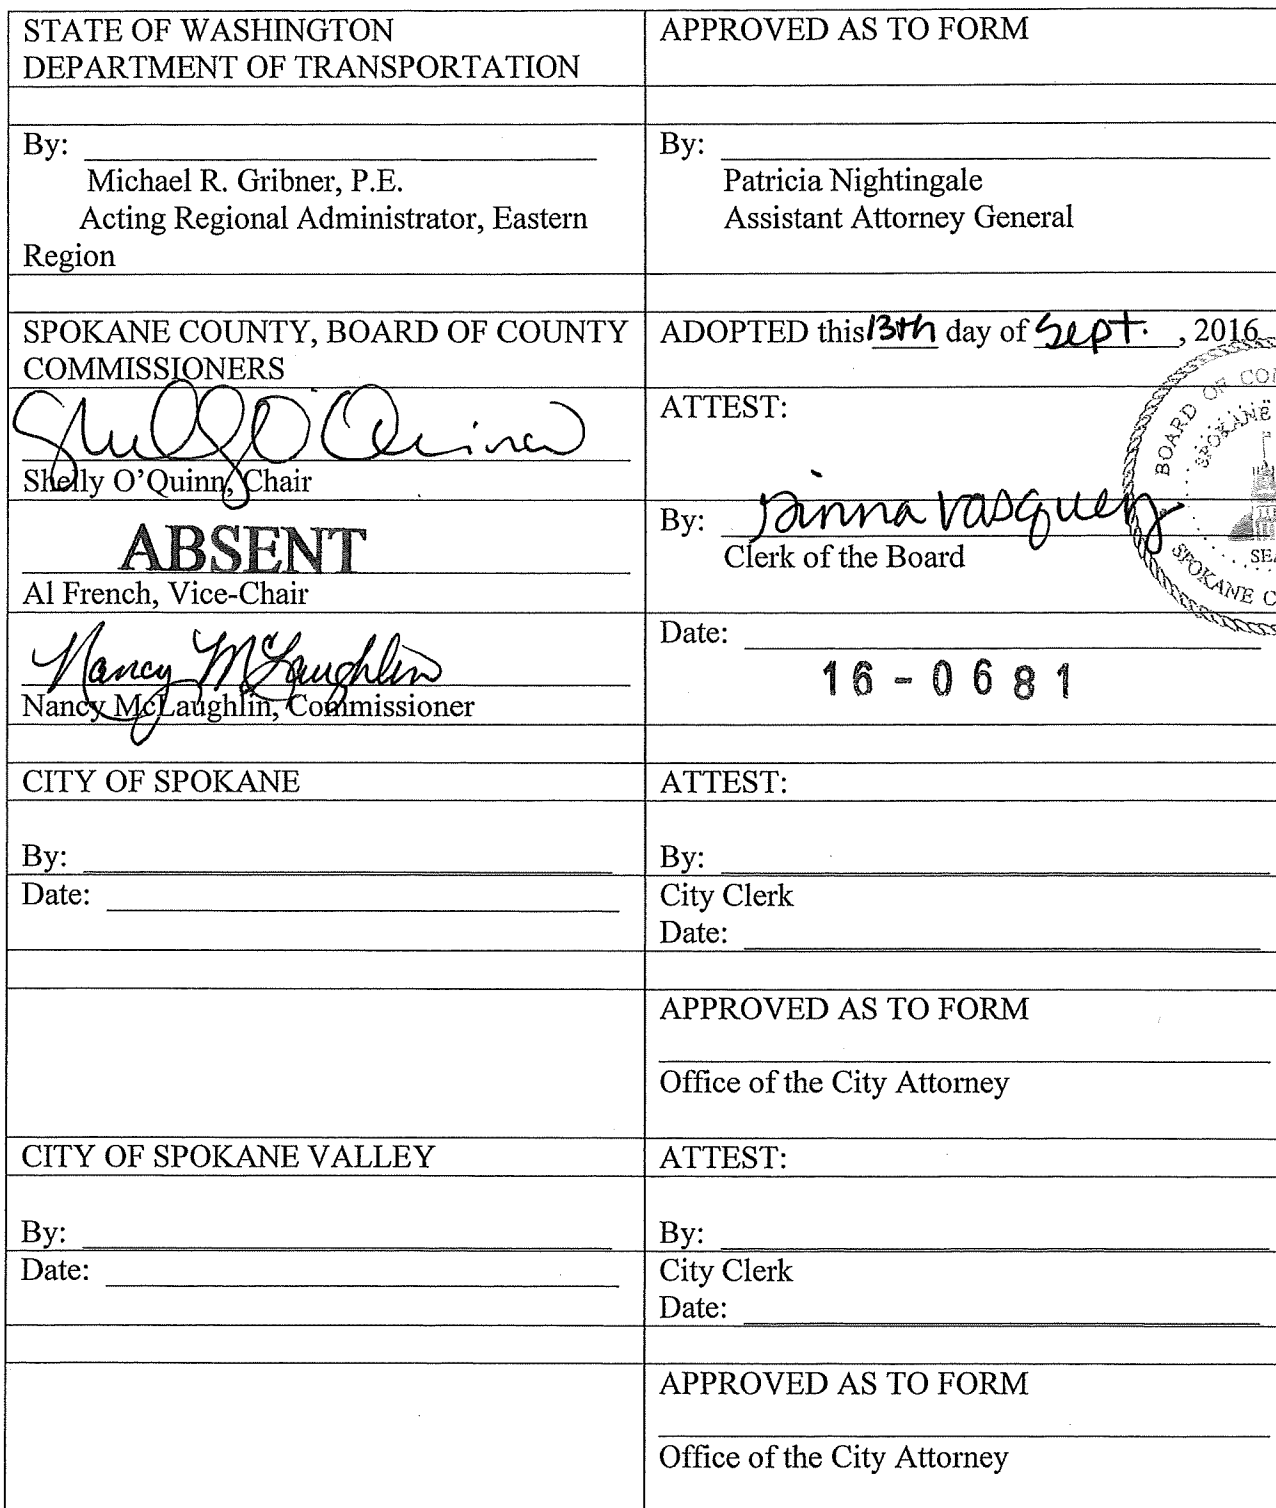 STATE OF WASHINGTON
DEPARTMENT OF TRANSPORTATION
APPROVED AS TO FORM
By:
Michael R. Gribner, P.E.
Acting Regional Administrator, Eastern
Region
By:
Patricia Nightingale
Assistant Attorney General
SPOKANE COUNTY, BOARD OF COUNTY
COMMISSIONERS
ADOPTED this 13th day of Sept. , 2016
Shelly O'Quinn
Shelly O'Quinn, Chair
ATTEST:
By: Ginna Vasquez
Clerk of the Board
BOARD OF CO
SPOKANE
SEA
SPOKANE C
ABSENT
Al French, Vice-Chair
Nancy McLaughlin
Nancy McLaughlin, Commissioner
Date:
16 - 0681
CITY OF SPOKANE
ATTEST:
By:
Date:
By:
City Clerk
Date:
APPROVED AS TO FORM
Office of the City Attorney
CITY OF SPOKANE VALLEY
ATTEST:
By:
Date:
By:
City Clerk
Date:
APPROVED AS TO FORM
Office of the City Attorney